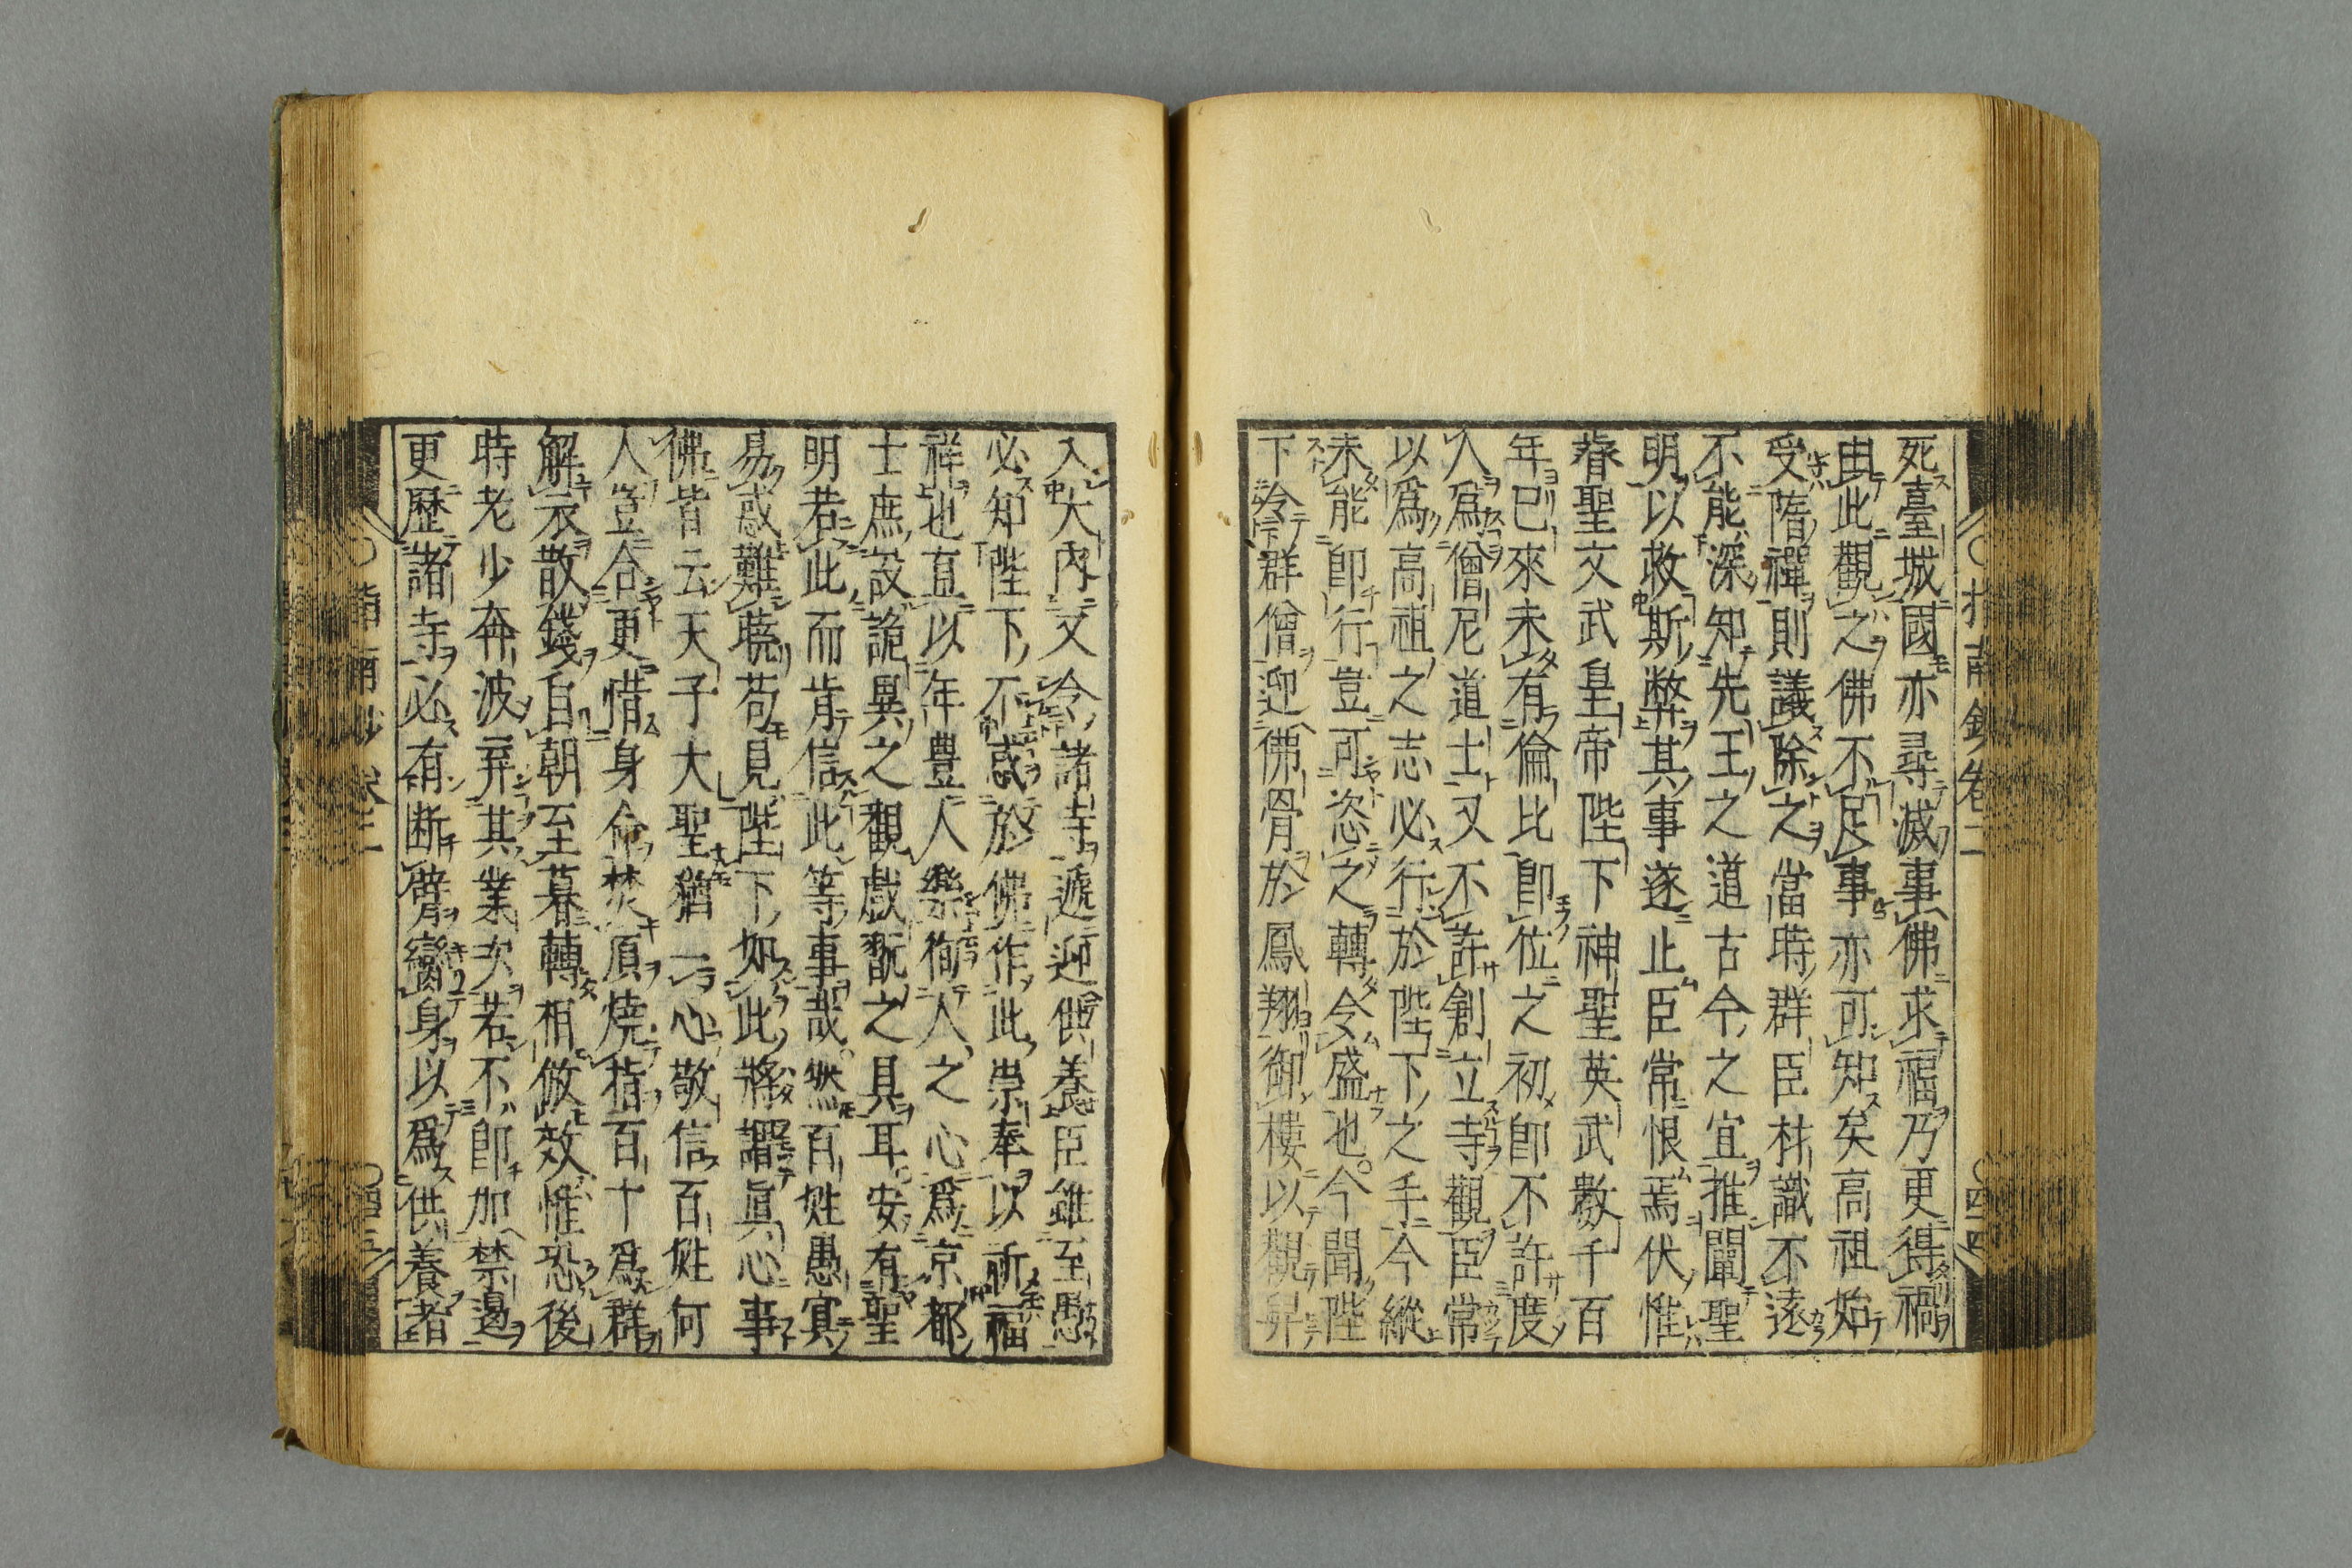 死臺城國亦尋滅事佛求福乃更得禍
由此觀之佛不足事亦可知矣高祖始
受隋禪則議除之當時群臣材識不遠
不能深知先王之道古今之宜推闡聖
明以救斯弊其事遂止臣常恨焉伏惟
睿聖文武皇帝陛下神聖英武數千百
年已來未有倫比即位之初即不許度
人爲僧尼道士又不許創立寺觀臣常
以爲高祖之志必行於陛下之手今縱
未能即行豈可恣之轉令盛也今聞陛
下令群僧迎佛骨於鳳翔御樓以觀舁
入大内又令諸寺遞迎供養臣雖至愚
必知陛下不惑於佛作此崇奉以祈福
祥也直以年豊人樂徇人之心爲京都
士庶設詭異之觀戲翫之具耳安有聖
明若此而肯信此等事哉然百姓愚冥
易惑難曉苟見陛下如此將謂眞心事
佛皆云天子大聖猶一心敬信百姓何
人豈合更惜身命焚頂燒指百十爲群
解衣散錢自朝至暮轉相倣效惟恐後
時老少奔波棄其業次若不即加禁遏
更歷諸寺必有断臂臠身以爲供養者